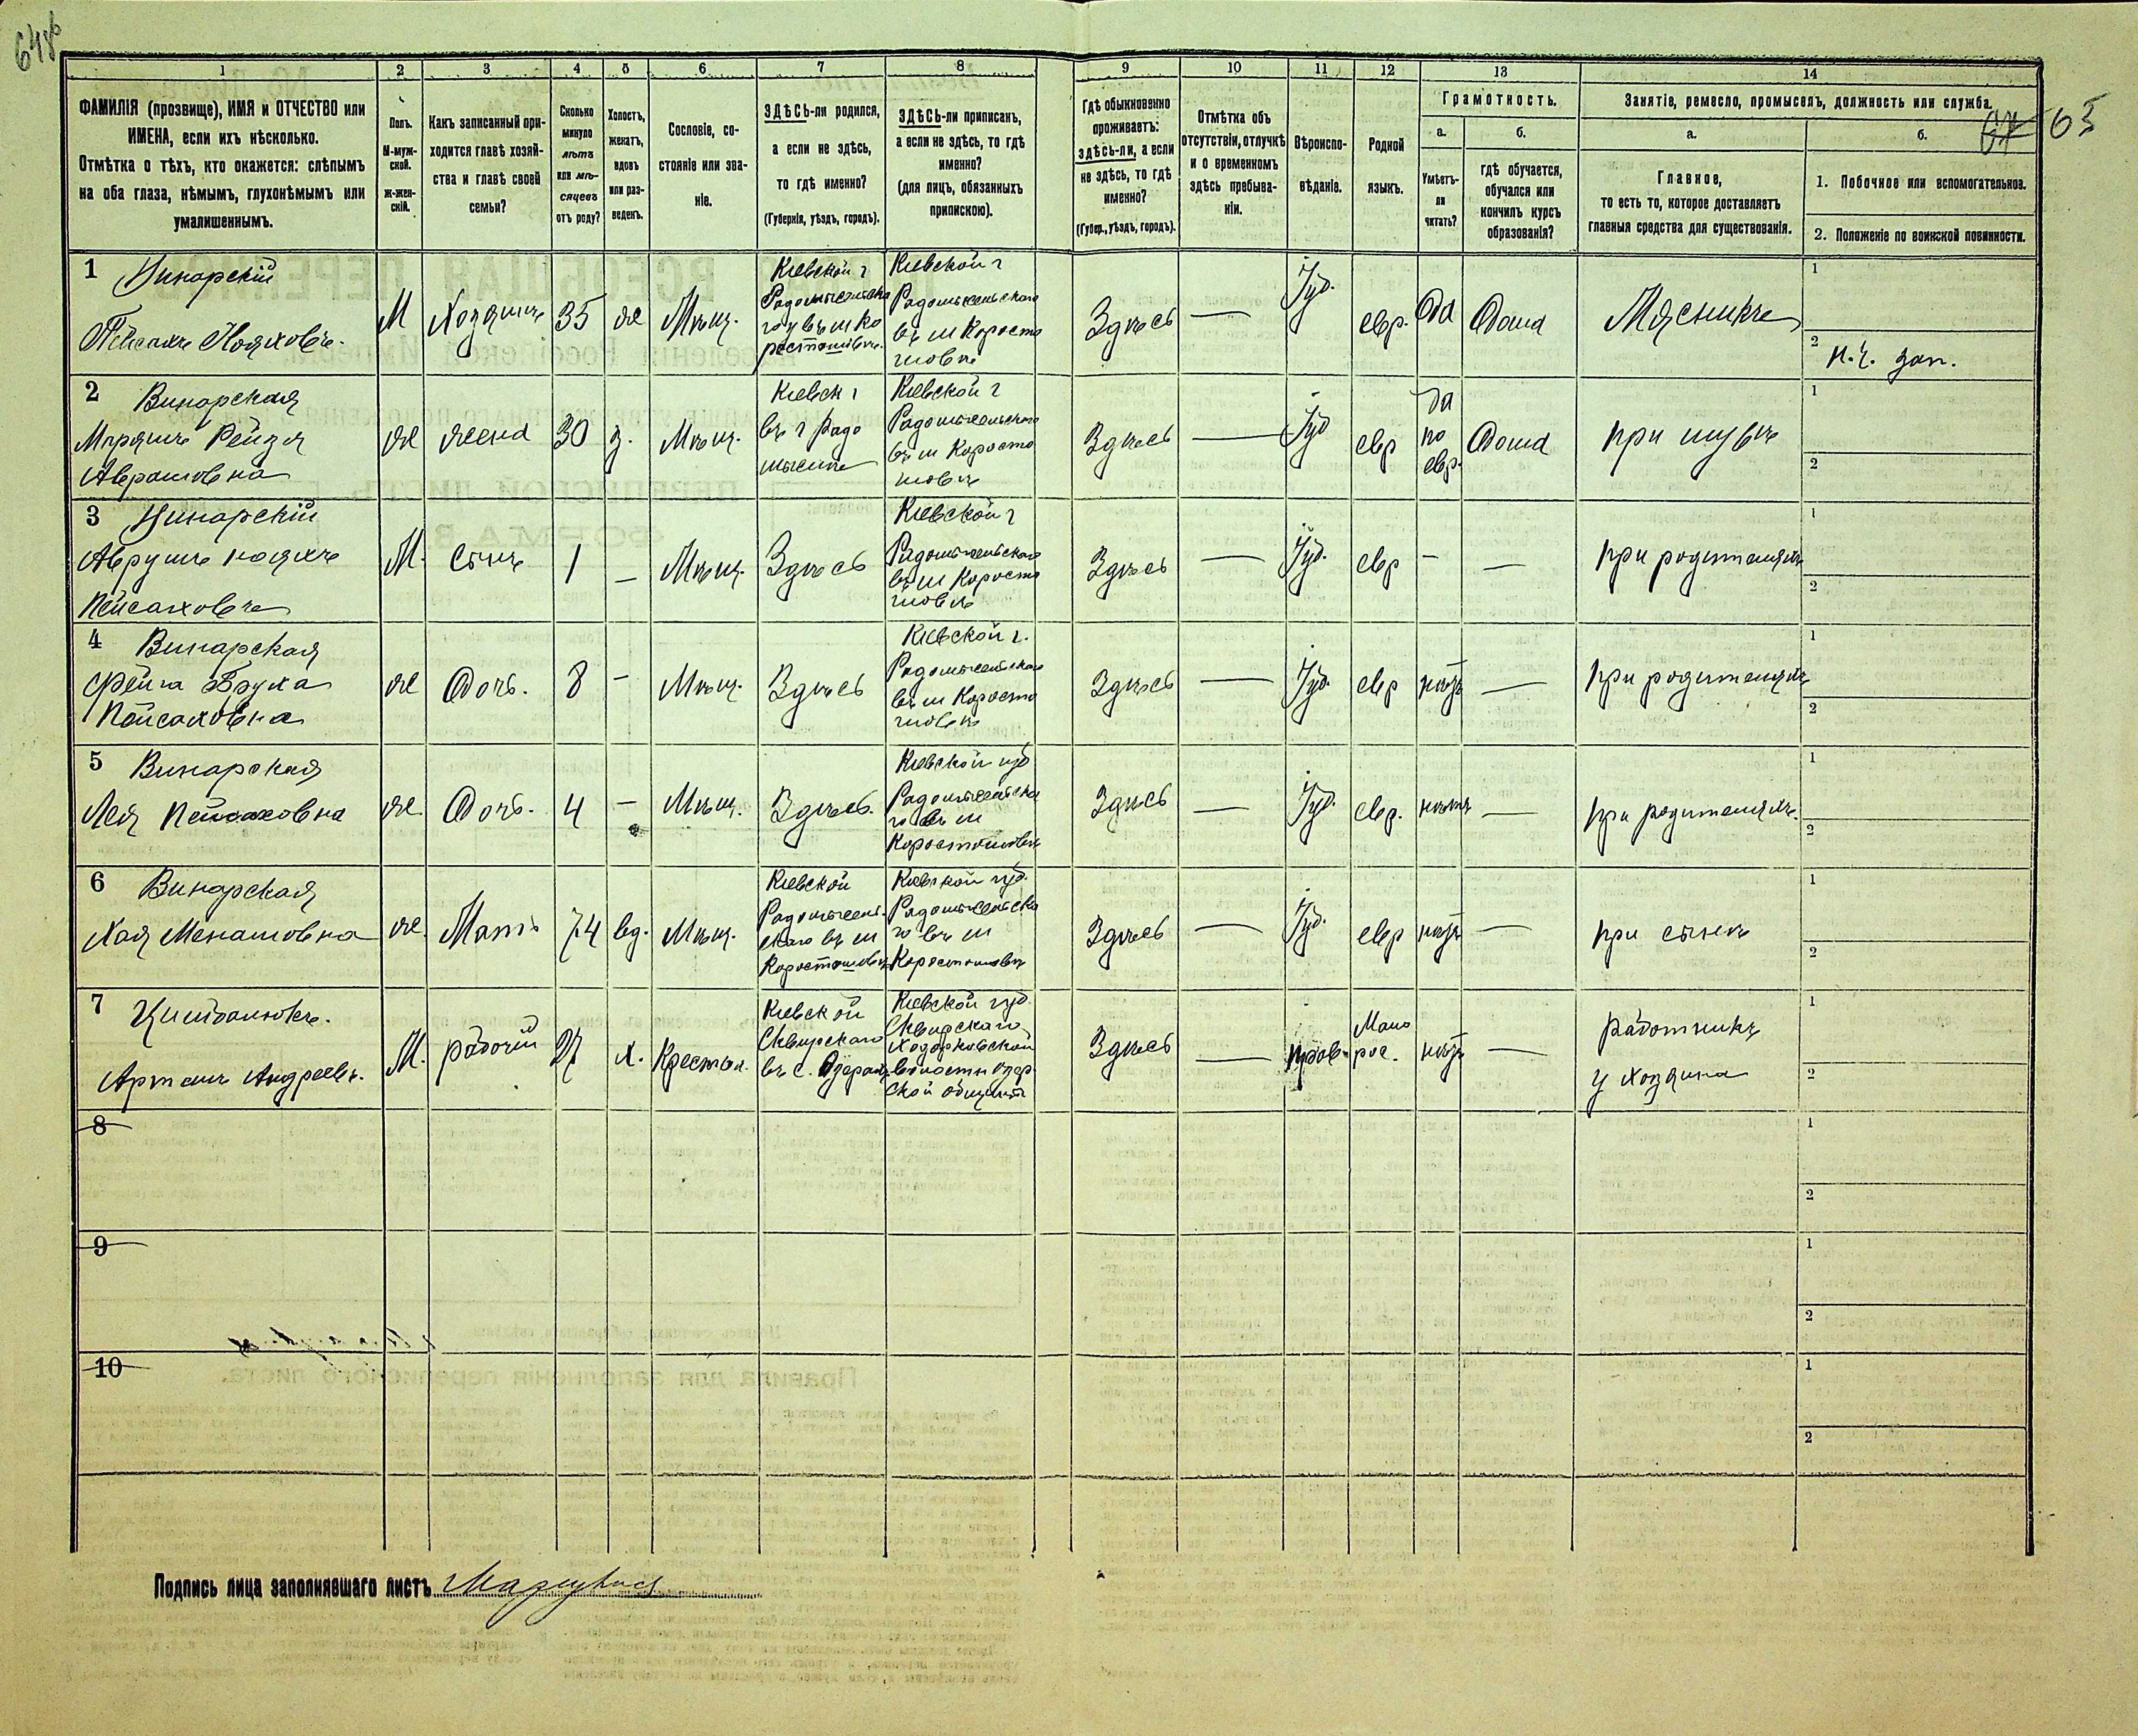 648б
1 2 3 4 5 6 7 8 9 10 11 12 13 14
ФАМИЛІЯ (прозвище), ИМЯ и ОТЧЕСТВО или
ИМЕНА, если ихъ нѣсколько.
Отмѣтка о тѣхъ, кто окажется: слѣпымъ
на оба глаза, нѣмымъ, глухонѣмымъ или
умалишеннымъ.
Полъ.
М-муж-
ской.
ж-жен-
скій.
Какъ записанный при-
ходится главѣ хозяй-
ства и главѣ своей
семьи?
Сколько
минуло
лѣтъ
или мѣ-
сяцевъ
отъ роду?
Холостъ,
женатъ,
вдовъ
или раз-
веденъ.
Сословіе, со-
стояніе или зва-
ніе.
ЗДѢСЬ-ли родился,
а если не здѣсь,
то гдѣ именно?
(Губернія, уѣздъ, городъ).
ЗДѢСЬ-ли приписанъ,
а если не здѣсь, то гдѣ
именно?
(для лицъ, обязанныхъ
припискою).
Гдѣ обыкновенно
проживаетъ:
здѣсь-ли, а если
не здѣсь, то гдѣ
именно?
(Губер., уѣздъ, городъ).
Отмѣтка объ
отсутствіи, отлучкѣ
и о временномъ
здѣсь пребыва-
ніи.
Вѣроиспо-
вѣданіе.
Родной
языкъ.
Грамотность.
а.
Умѣетъ-
ли
читать?
б.
гдѣ обучается,
обучался или
кончилъ курсъ
образованія?
Занятіе, ремесло, промыселъ, должность или служба.
а.
Главное,
то есть то, которое доставляетъ
главныя средства для существованія.
б.
1. Побочное или вспомогательное.
2. Положеніе по воинской повинности.
63
1 Винарскій
Пейсахъ Нояховъ.
М
Хозяинъ
35
ж
Мѣщ.
Кіевской г
Радомысльска
го у въ м Ко
ростышовѣ.
Кіевской г
Радомысльскаго
въ м Коросты
шовѣ
Здѣсь
—
Іуд.
евр.
Да
Дома
Мясникъ
1
2 н.ч. зап.
2 Винарская
Маріямъ Рейзя
Аврамовна
ж
жена
30
з.
Мѣщ.
Кіевск г
въ г Радо
мыслѣ
Кіевской г
Радомысльскаго
въ м Коросты
шовѣ
Здѣсь
—
Іуд
евр
да
по
евр.
Дома
при мужѣ
1
2
3 Винарскій
Аврумъ Нояхъ
Пейсаховъ
М.
Сынъ
1
—
Мѣщ.
Здѣсь
Кіевской г
Радомысльскаго
въ м Коросты
шовѣ
Здѣсь
—
Іуд.
евр
—
—
при родителяхъ
1
2
4 Винарская
Фейга Бруха
Пейсаховна
ж
Дочь.
8
—
Мѣщ.
Здѣсь
Кіевской г.
Радомысльскаго
въ м Коросты
шовѣ
Здѣсь
—
Іуд.
евр
нѣтъ
—
при родителяхъ
1
2
5 Винарская
Лея Пейсаховна
ж.
Дочь.
4
—
Мѣщ.
Здѣсь.
Кіевской губ
Радомысльска
го въ м
Коростышовѣ
Здѣсь
—
Іуд.
евр.
нѣтъ
—
при родителяхъ.
1
2
6 Винарская
Хая Менашовна
ж.
Мать
74
вд.
Мѣщ.
Кіевской
Радомысль-
скаго въ м
Коростышовѣ
Кіевской губ.
Радомысльска
го въ м
Коростышовѣ
Здѣсь
—
Іуд.
евр
нѣтъ
—
при сынѣ
1
2
7
Артемъ Андреевъ.
М.
рабочій
27
х.
Крестьян.
Кіевской
Сквирскаго
въ с. Озерахъ
Кіевской губ
Сквирскаго
Ходорковской
волости Озер
ской общины
Здѣсь
—
прав.
Мало
рос.
нѣтъ
—
работникъ
у хозяина
1
2
8
1
2
9
1
2
10
1
2
Подпись лица заполнявшаго листъ